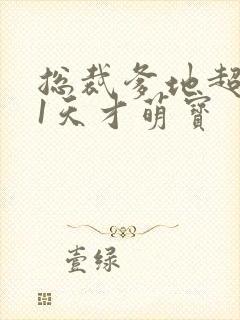 总裁爹地超
1天才萌宝
壹绿